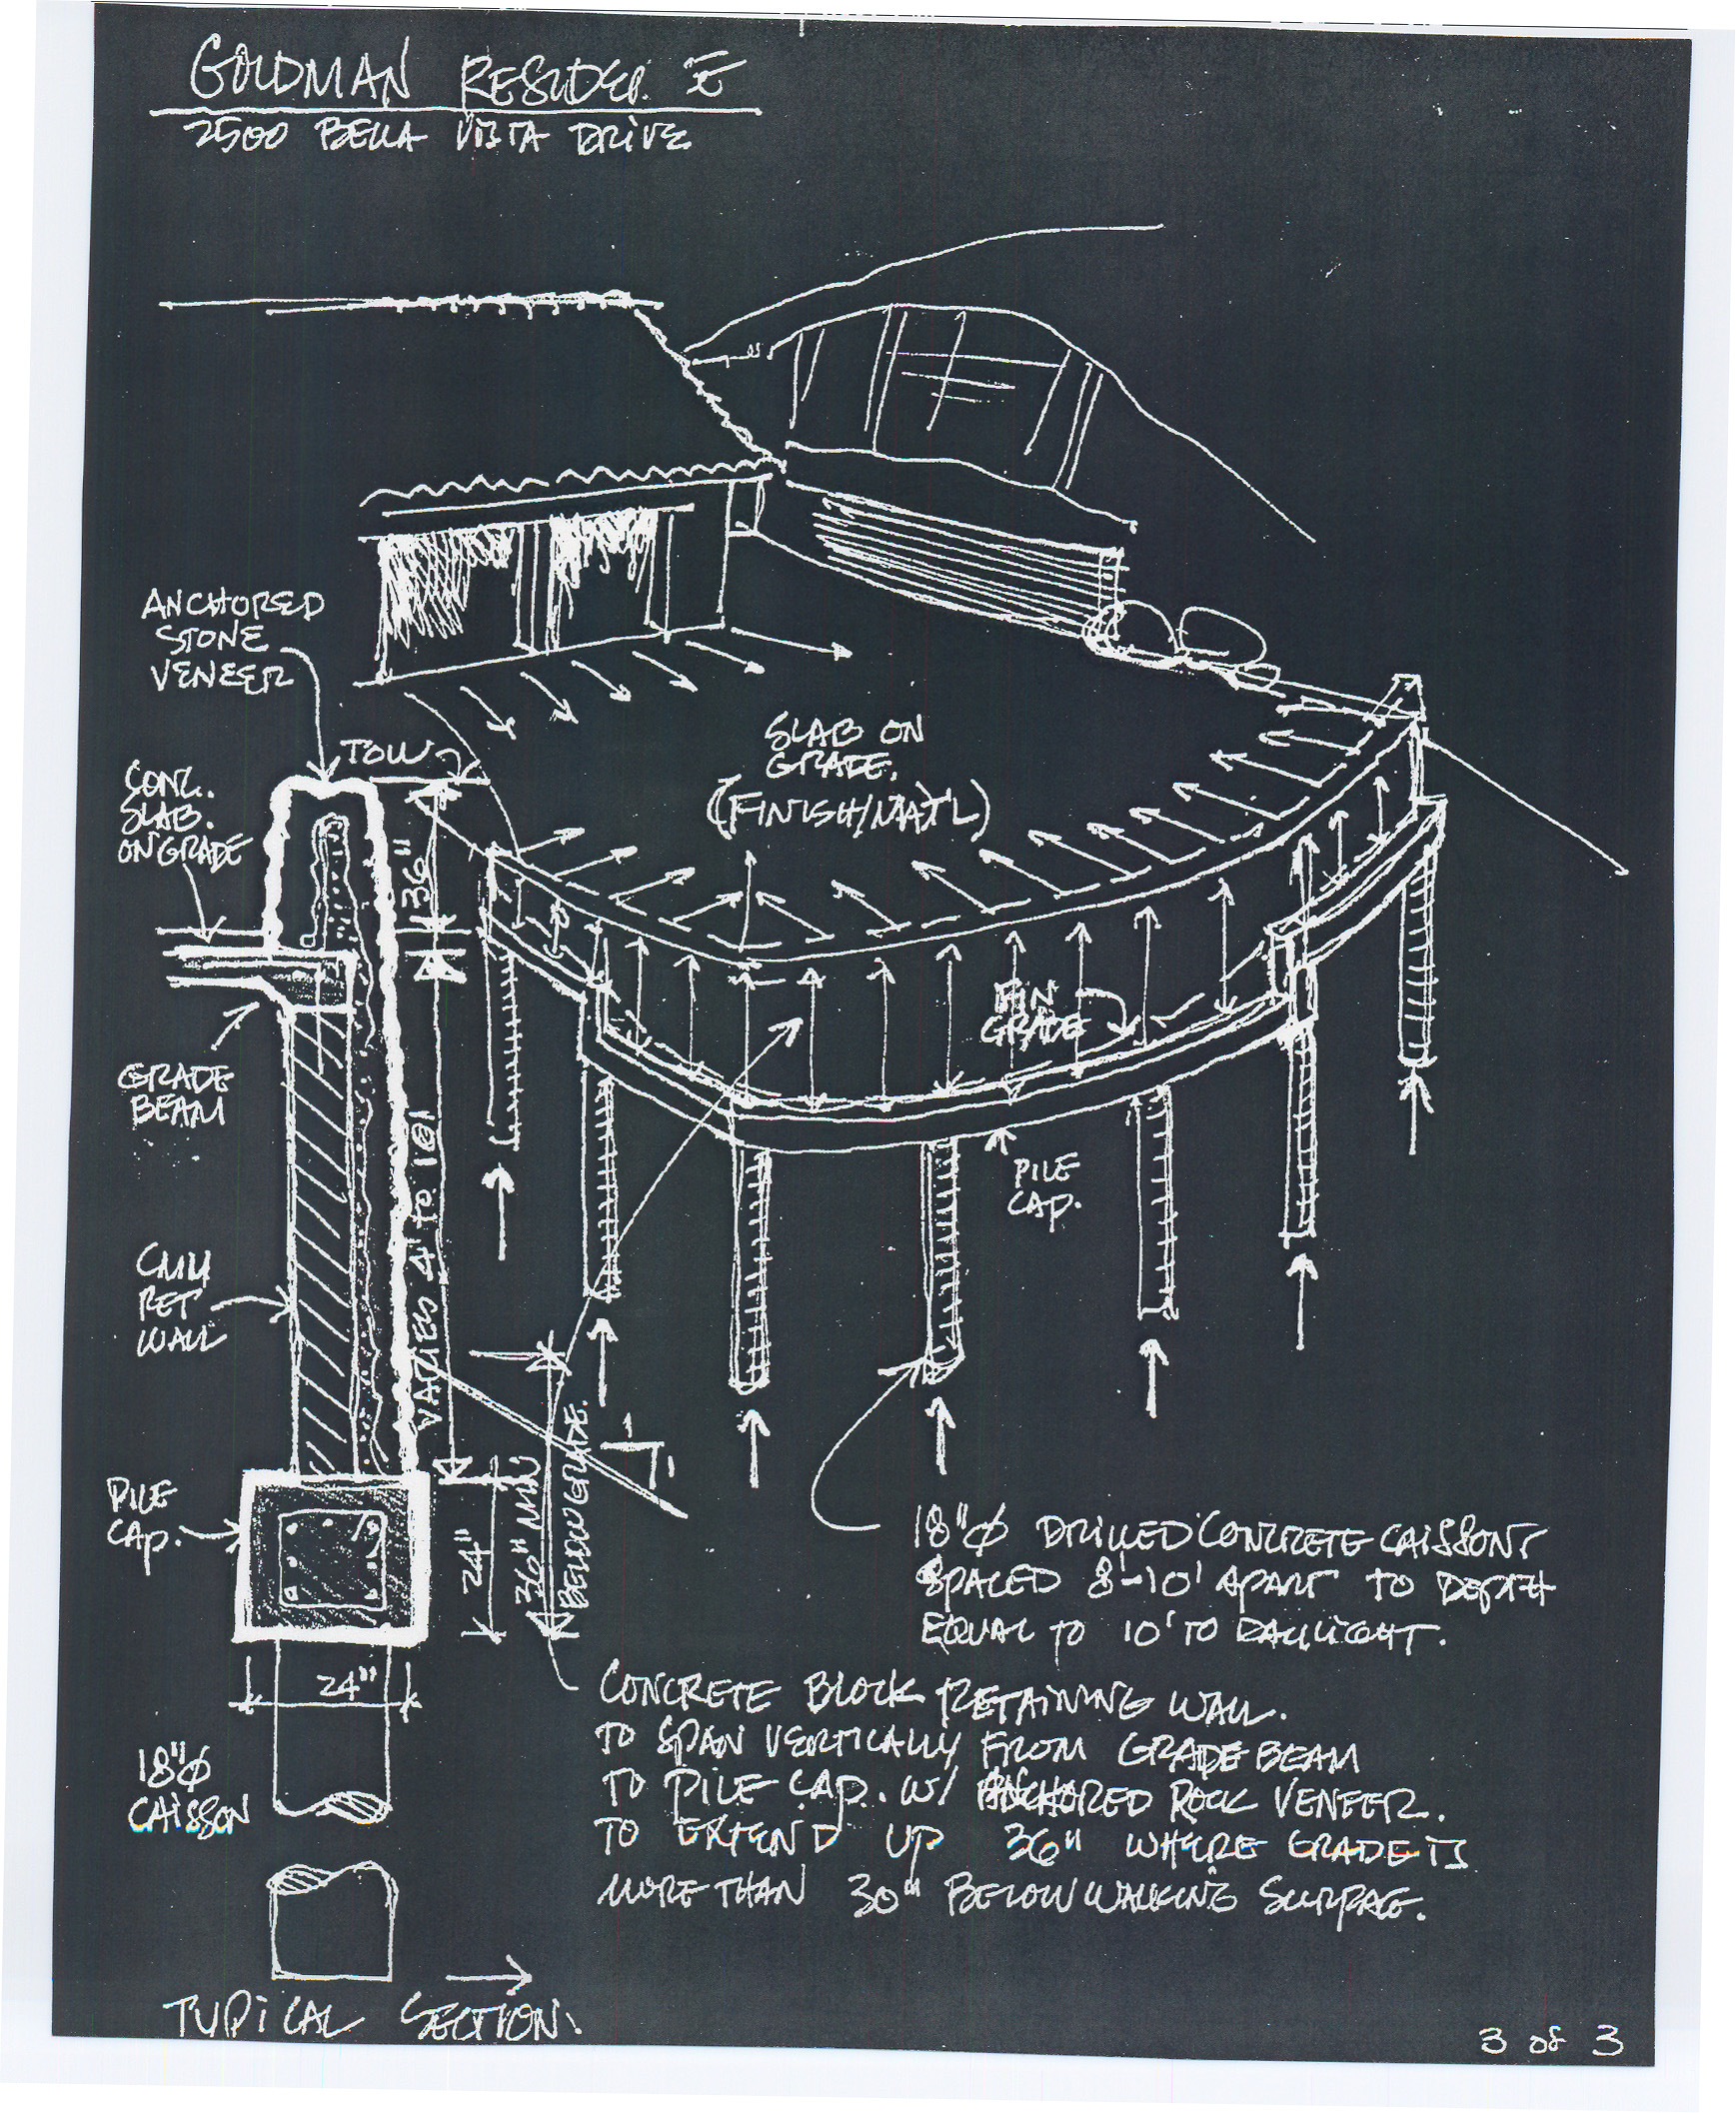 GOLDMAN RESIDENCE
2500 BELLA VISTA DRIVE
ANCHORED
STONE
VENEER
TOW
CONC.
SLAB.
ON GRADE
36"
SLAB ON
GRADE.
(FINISH/MAT'L)
FIN
GRADE
GRADE
BEAM
VARIES 4' to 10'
PILE
CAP.
CMU
RET
WALL
1
1
PILE
CAP.
24"
36" MIN
BELOW GRADE.
18"Ø DRILLED CONCRETE CAISSONS
SPACED 8'-10' APART TO DEPTH
EQUAL TO 10' TO DAYLIGHT.
24"
CONCRETE BLOCK RETAINING WALL.
TO SPAN VERTICALLY FROM GRADE BEAM
TO PILE CAP. W/ ANCHORED ROCK VENEER.
TO EXTEND UP 36" WHERE GRADE IS
MORE THAN 30" BELOW WALKING SURFACE.
18"Ø
CAISSON
TYPICAL SECTION.
3 of 3